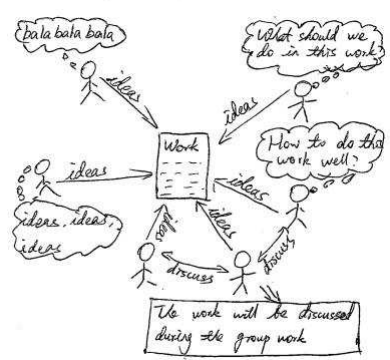 bala bala bala
What should we
do in this work?
ideas
ideas
Work
How to do this
work well?
ideas
ideas
ideas, ideas,
ideas
ideas
ideas
discuss
discuss
The work will be discussed
during the group work